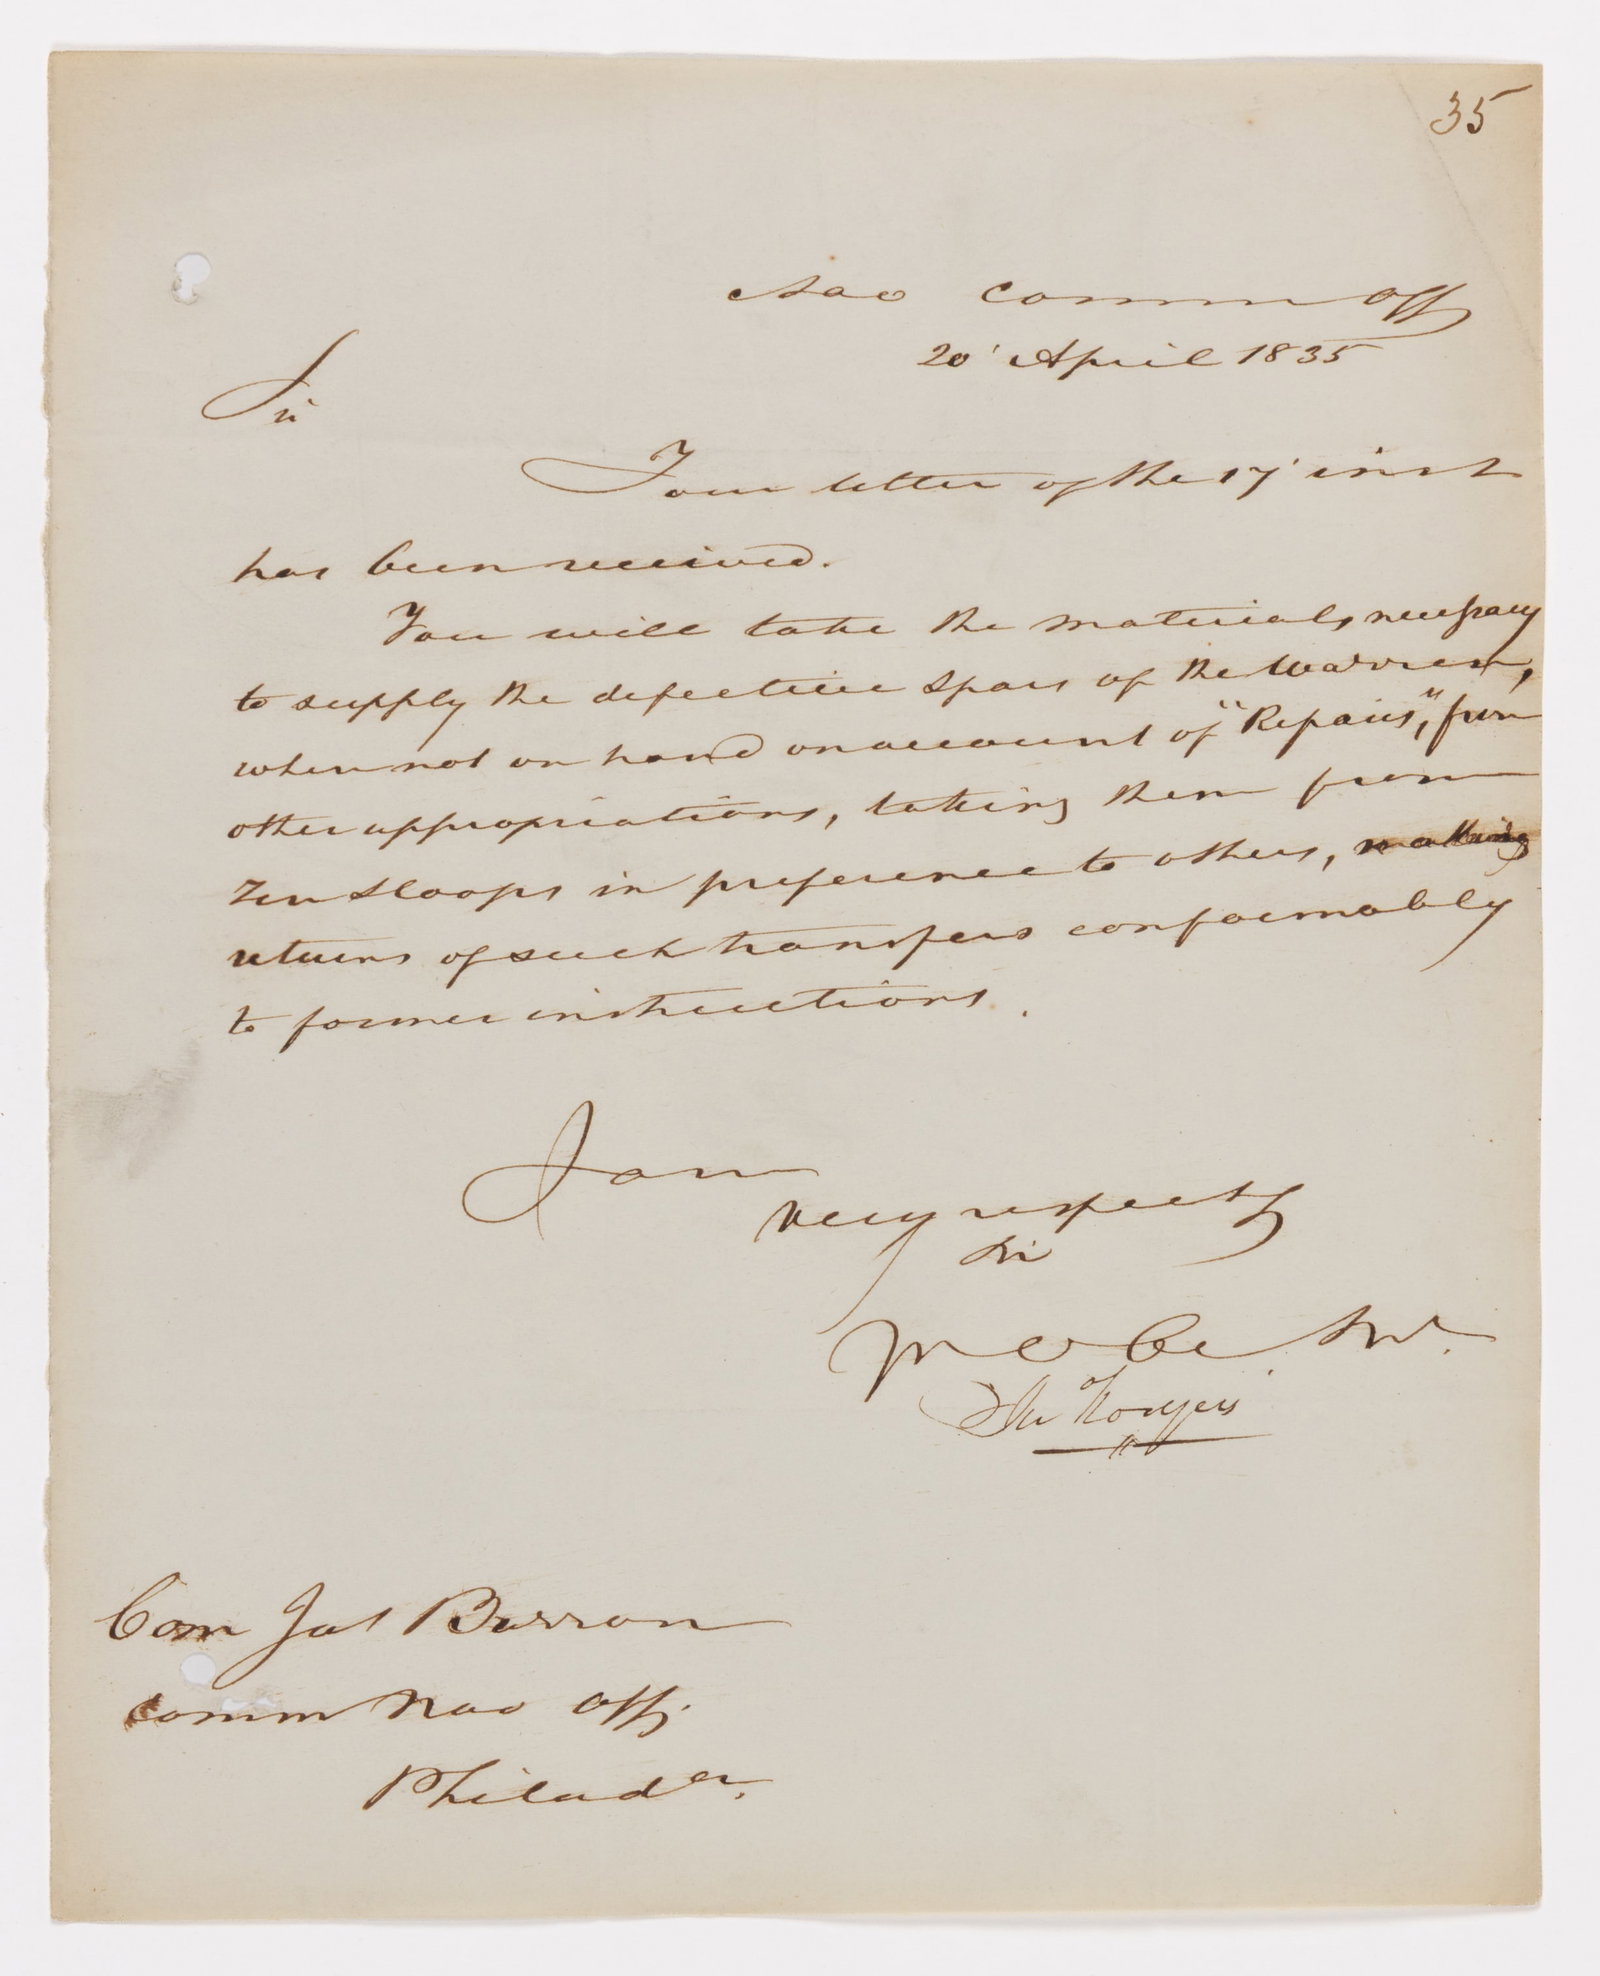 35
Nav Comm Off
20' April 1835
Sir
Your letter of the 17' inst
has been received.
You will take the materials necessary
to supply the defective spars of the Warren,
when not on hand on account of "Repairs", from
other appropriations, taking them from
Ten Sloops in preference to others, making
returns of such transfers conformably
to former instructions.
I am
very respecty
Sir
Yr Ob. Svt.
Jn Rodgers
Com Jas Barron
Comm Nav Offi.
Philada.